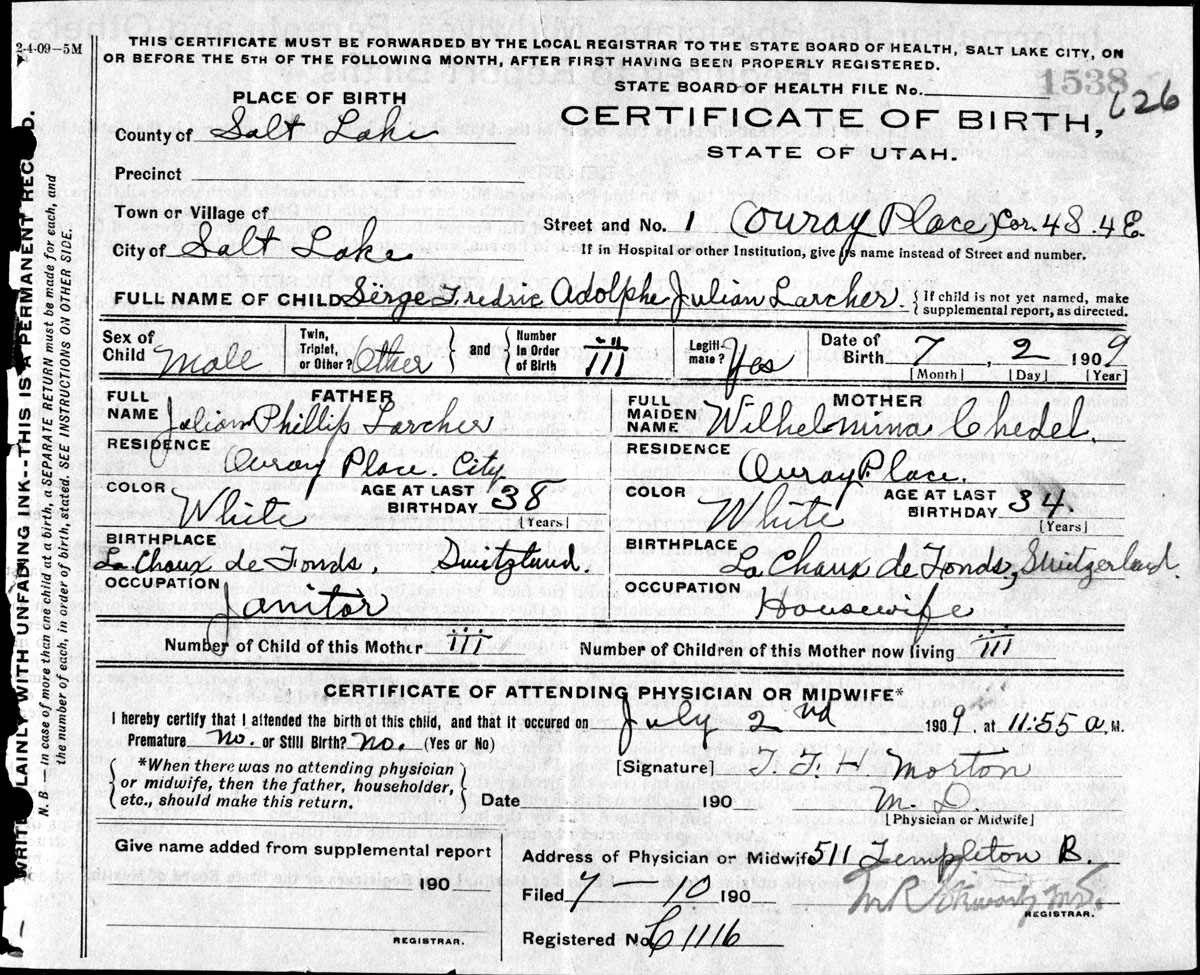 2-4-09-5M
THIS CERTIFICATE MUST BE FORWARDED BY THE LOCAL REGISTRAR TO THE STATE BOARD OF HEALTH, SALT LAKE CITY, ON
OR BEFORE THE 5TH OF THE FOLLOWING MONTH, AFTER FIRST HAVING BEEN PROPERLY REGISTERED.
1538
STATE BOARD OF HEALTH FILE No.
626
PLACE OF BIRTH
CERTIFICATE OF BIRTH,
County of Salt Lake
STATE OF UTAH.
Precinct
Town or Village of
Street and No. 1 Couray Place) Cor. 4S. 4E.
City of Salt Lake
If in Hospital or other Institution, give its name instead of Street and number.
FULL NAME OF CHILD Serge Fredric Adolphe Julian Larcher. {If child is not yet named, make
supplemental report, as directed.
Sex of Child Male Twin, Triplet, or Other? Other and Number In Order of Birth III Legiti-mate? Yes Date of Birth 7, 2 1909
[Month] [Day] [Year]
FATHER
FULL NAME Julian Phillip Larcher
RESIDENCE
Ouray Place. City
COLOR White AGE AT LAST BIRTHDAY 38
[Years]
BIRTHPLACE
La Chaux de Fonds, Switzlund.
OCCUPATION
Janitor
MOTHER
FULL MAIDEN NAME Wilhelmina Chedel.
RESIDENCE
Ouray Place.
COLOR White AGE AT LAST BIRTHDAY 34.
[Years]
BIRTHPLACE
La Chaux de Fonds, Switzerland.
OCCUPATION
Housewife
Number of Child of this Mother III Number of Children of this Mother now living III
CERTIFICATE OF ATTENDING PHYSICIAN OR MIDWIFE*
I hereby certify that I attended the birth of this child, and that it occured on July 2nd 1909. at 11:55 a.M.
Premature no. or Still Birth? no. (Yes or No)
*When there was no attending physician
or midwife, then the father, householder,
etc., should make this return.
[Signature] T. F. H Morton
Date 190 M. D
[Physician or Midwife]
Give name added from supplemental report
190
REGISTRAR.
Address of Physician or Midwife 511 Templeton B.
Filed 7-10 190
REGISTRAR.
Registered No. C1116
WRITE PLAINLY WITH UNFADING INK--THIS IS A PERMANENT RECORD.
N. B.—In case of more than one child at a birth, a SEPARATE RETURN must be made for each, and
the number of each, in order of birth, stated. SEE INSTRUCTIONS ON OTHER SIDE.